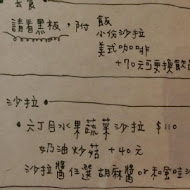 食
請看黑板，附 飯
小份沙拉
美式咖啡
+70元可更換飲
沙拉
六丁目水果蔬菜沙拉 $110
奶油炒菇 +40元
沙拉醬任選胡麻醬or和